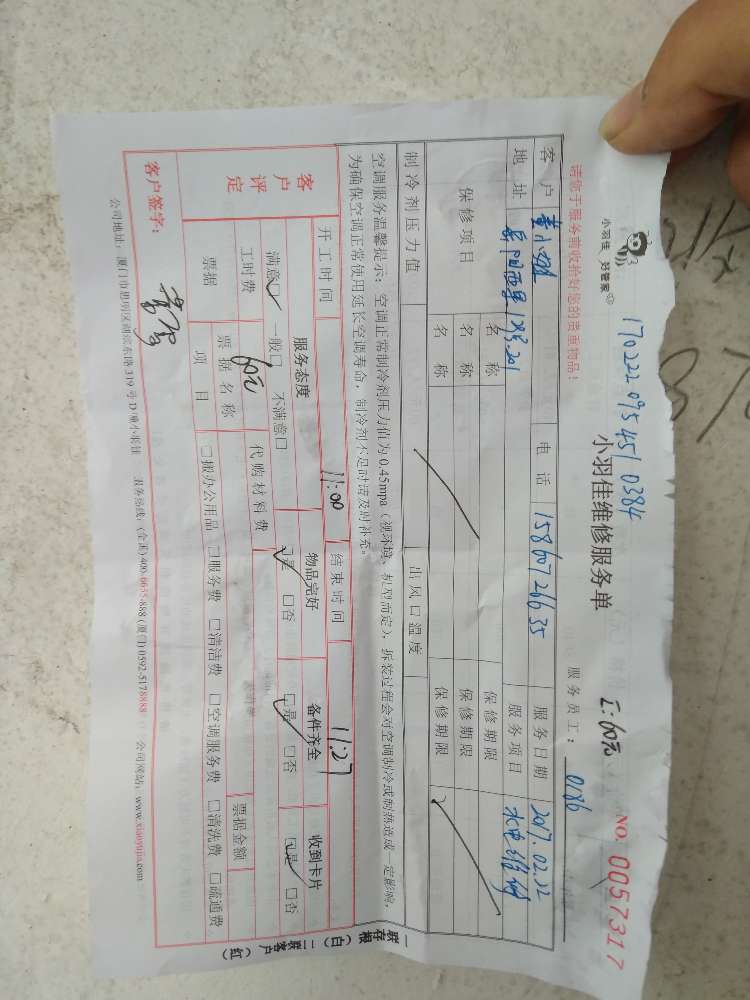 小羽佳 好管家
1702220954510384
小羽佳维修服务单
工:60元
NO. 0057317
请您于服务前收拾好您的贵重物品!
服务员工: 0186
客户 电话 15860726635 服务日期 2017.02.22
地址 岳阳西里 201 服务项目 水电维修
保修项目 名称 保修期限
名称 保修期限
名称 保修期限
制冷剂压力值 出风口温度
空调服务温馨提示:空调正常制冷剂压力值为0.45mpa(视环境、机型而定),拆装过程会对空调制冷或制热造成一定影响,
为确保空调正常使用延长空调寿命,制冷剂不足时请及时补充。
开工时间 11:00 结束时间 11:27
客户评定 服务态度 物品完好 备件齐全 收到卡片
满意☑ 一般口 不满意口 ☑是 口否 ☑是 口否 ☑是 口否
工时费 60元 代购材料费
票据 票据名称 票据金额
项目 口搬办公用品 口服务费 口清洁费 口空调服务费 口清洗费 口疏通费
客户签字:
公司地址:厦门市思明区湖滨东路319号 服务热线:(全国)400-6655-888 (厦门)0592-5178888 公司网站:www.xiaoyujia.com
一联存根(白) 二联客户(红)